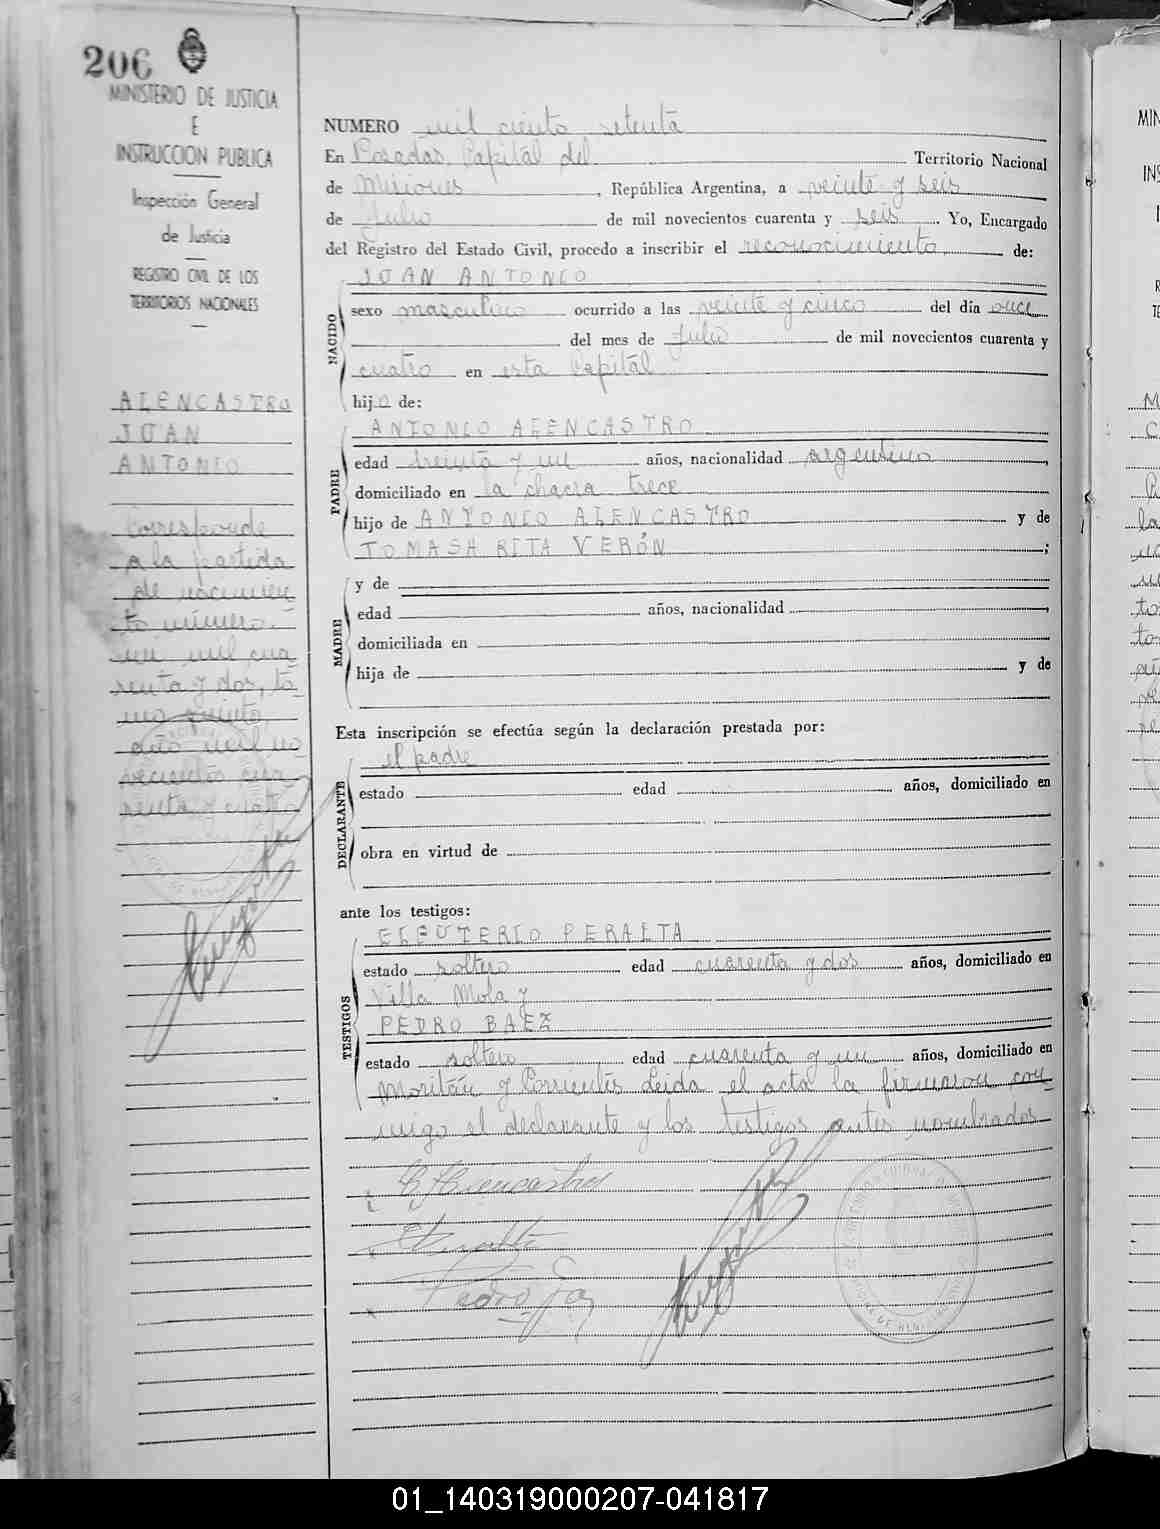 206
MINISTERIO DE JUSTICIA
E
INSTRUCCION PUBLICA
Inspección General
de Justicia
REGISTRO CIVIL DE LOS
TERRITORIOS NACIONALES
ALENCASTRO
JUAN
ANTONIO
Corresponde
a la partida
de nacimien
to número
un mil cua
renta y dos, to
mo quinto
año mil no
vecientos cua
renta y cuatro
NUMERO mil ciento setenta
En Posadas, Capital del Territorio Nacional
de Misiones, República Argentina, a veinte y seis
de Julio de mil novecientos cuarenta y seis. Yo, Encargado
del Registro del Estado Civil, procedo a inscribir el reconocimiento de:
JUAN ANTONIO
NACIDO
sexo masculino ocurrido a las veinte y cinco del día once
del mes de Julio de mil novecientos cuarenta y
cuatro en esta Capital
hijo de:
ANTONIO ALENCASTRO
PADRE
edad treinta y un años, nacionalidad argentino,
domiciliado en la chacra trece
hijo de ANTONIO ALENCASTRO y de
TOMASA RITA VERÓN;
MADRE
y de
edad años, nacionalidad,
domiciliada en
hija de y de
Esta inscripción se efectúa según la declaración prestada por:
el padre
DECLARANTE
estado edad años, domiciliado en
obra en virtud de
ante los testigos:
ELEUTERIO PERALTA
TESTIGOS
estado soltero edad cuarenta y dos años, domiciliado en
Villa Mola y
PEDRO BAEZ
estado soltero edad cuarenta y un años, domiciliado en
Moritán y Corrientes Leida el acta la firmaron con
migo el declarante y los testigos antes nombrados
Alencastro
Peralta
Pedro
01_140319000207-041817